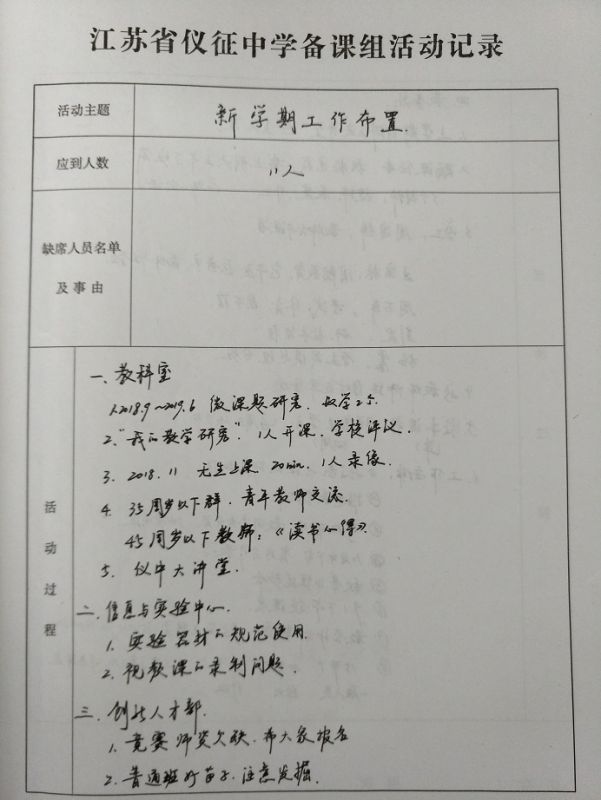 江苏省仪征中学备课组活动记录
活动主题 新学期工作布置.
应到人数 11人
缺席人员名单
及事由
活动过程
一、教科室
1、2018.9~2019.6 微课题研究. 数学2个.
2."我的教学研究". 1人开课, 学校评议.
3. 2018.11 无生上课 20min. 1人录像.
4. 35周岁以下群. 青年教师交流.
45周岁以下教师:《读书心得》.
5. 仪中大讲堂.
二. 信息与实验中心.
1. 实验器材的规范使用.
2. 视教课的录制问题.
三. 创新人才部.
1. 竞赛师资欠缺. 希大家报名
2. 普通班好苗子. 注意发掘.